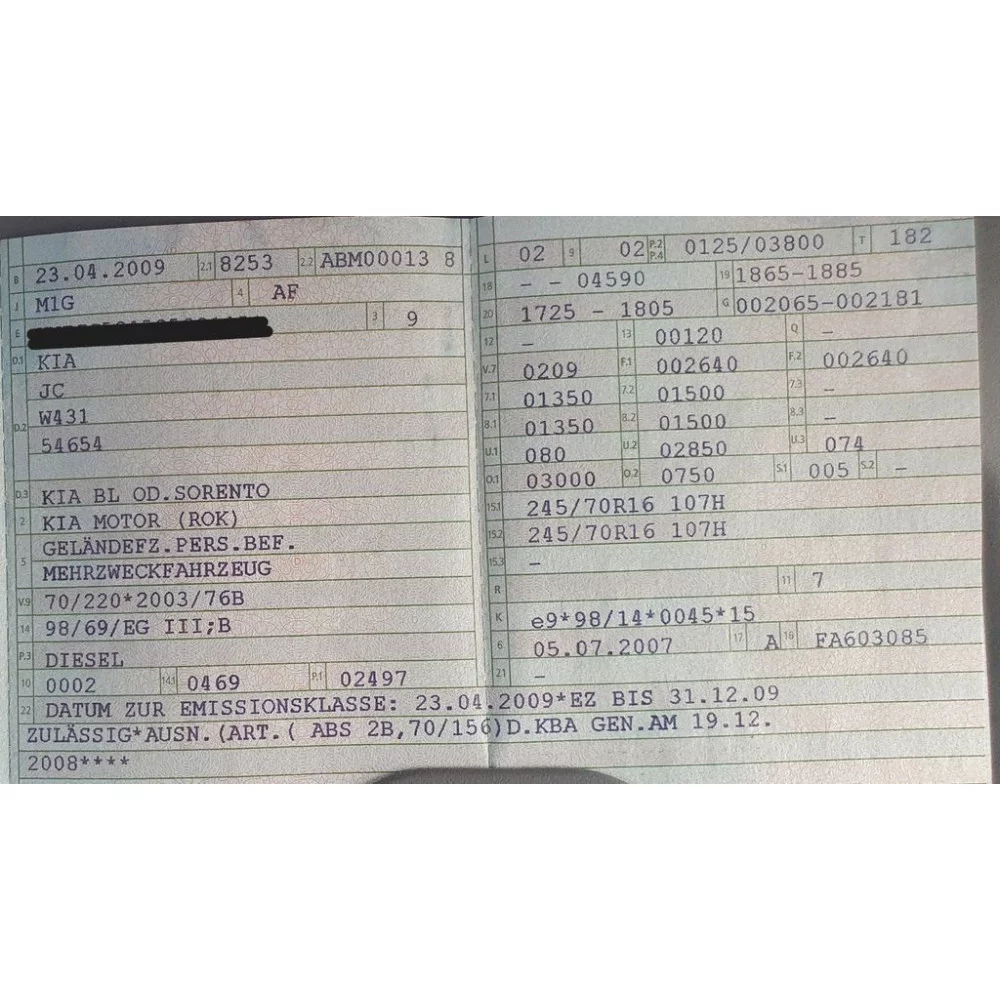 B 23.04.2009 2.1 8253 2.2 ABM00013 8
J M1G 4 AF
E 3 9
D.1 KIA
JC
D.2 W431
54654
D.3 KIA BL OD.SORENTO
2 KIA MOTOR (ROK)
5 GELÄNDEFZ.PERS.BEF.
MEHRZWECKFAHRZEUG
V.9 70/220*2003/76B
14 98/69/EG III;B
P.3 DIESEL
10 0002 14.1 0469 P.1 02497
L 02 9 02 P.2 P.4 0125/03800 T 182
18 – – 04590 19 1865–1885
20 1725 – 1805 G 002065–002181
12 – 13 00120 Q –
V.7 0209 F.1 002640 F.2 002640
7.1 01350 7.2 01500 7.3 –
8.1 01350 8.2 01500 8.3 –
U.1 080 U.2 02850 U.3 074
O.1 03000 O.2 0750 S.1 005 S.2 –
15.1 245/70R16 107H
15.2 245/70R16 107H
15.3 –
R 11 7
K e9*98/14*0045*15
6 05.07.2007 17 A 16 FA603085
21 –
22 DATUM ZUR EMISSIONSKLASSE: 23.04.2009*EZ BIS 31.12.09
ZULÄSSIG*AUSN.(ART.( ABS 2B,70/156)D.KBA GEN.AM 19.12.
2008****